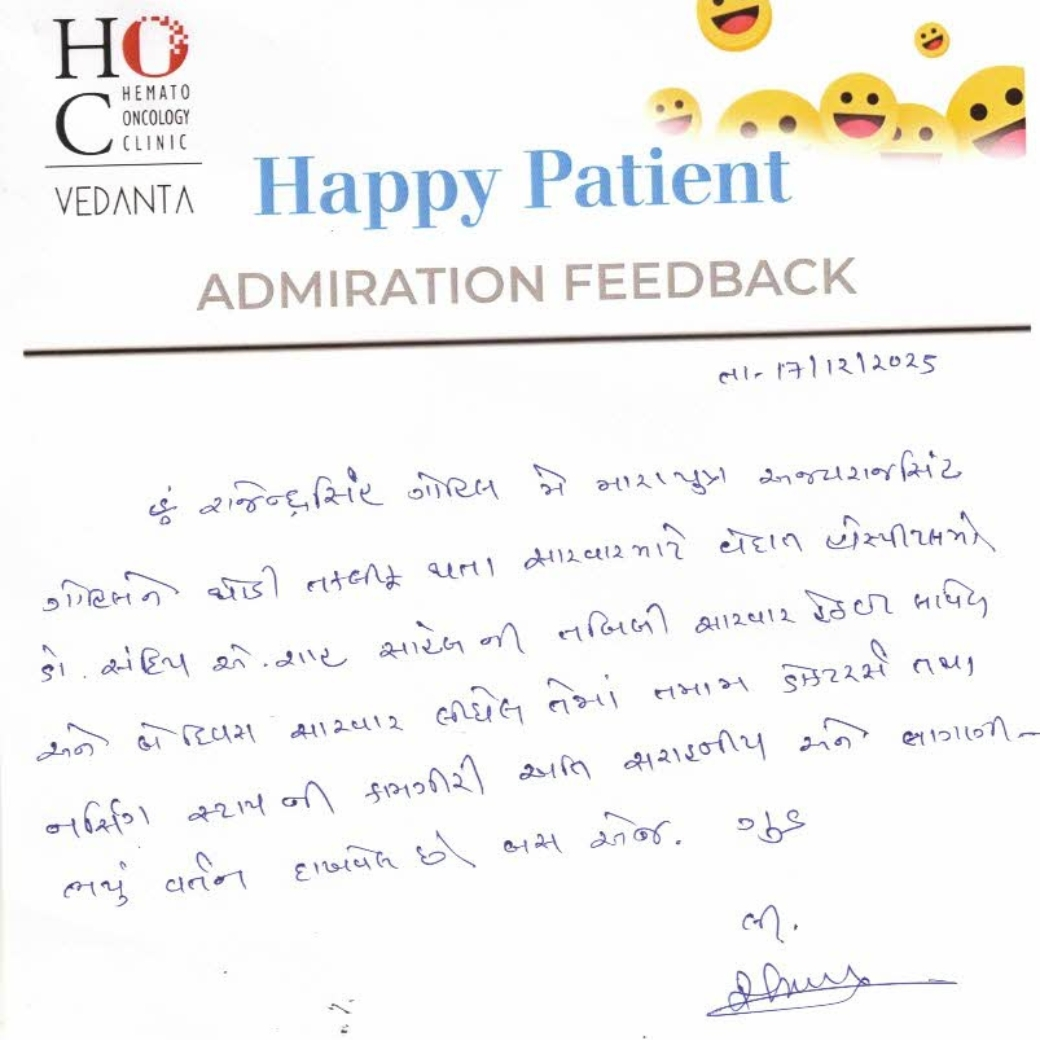 HOC
HEMATO
ONCOLOGY
CLINIC
VEDANTA
Happy Patient
ADMIRATION FEEDBACK
તા- 17/12/2025
હું રાજેન્દ્રસિંહ ગોહિલ મે મારા પુત્ર અજયરાજસિંહ
ગોહિલને થોડી તકલીફ થતા સારવાર માટે વેદાંત હોસ્પીટલમાં
ડો. સંદિપ એ. શાહ સાહેબ ની તબિબી સારવાર હેઠળ લાવેલ
અને બે દિવસ સારવાર લીધેલ તેમાં તમામ ડોકટરર્સ તથા
નર્સિંગ સ્ટાફ ની કામગીરી અતિ સરાહનીય અને લાગણી-
ભર્યુ વર્તન દાખવેલ છે બસ એજ.
લી.